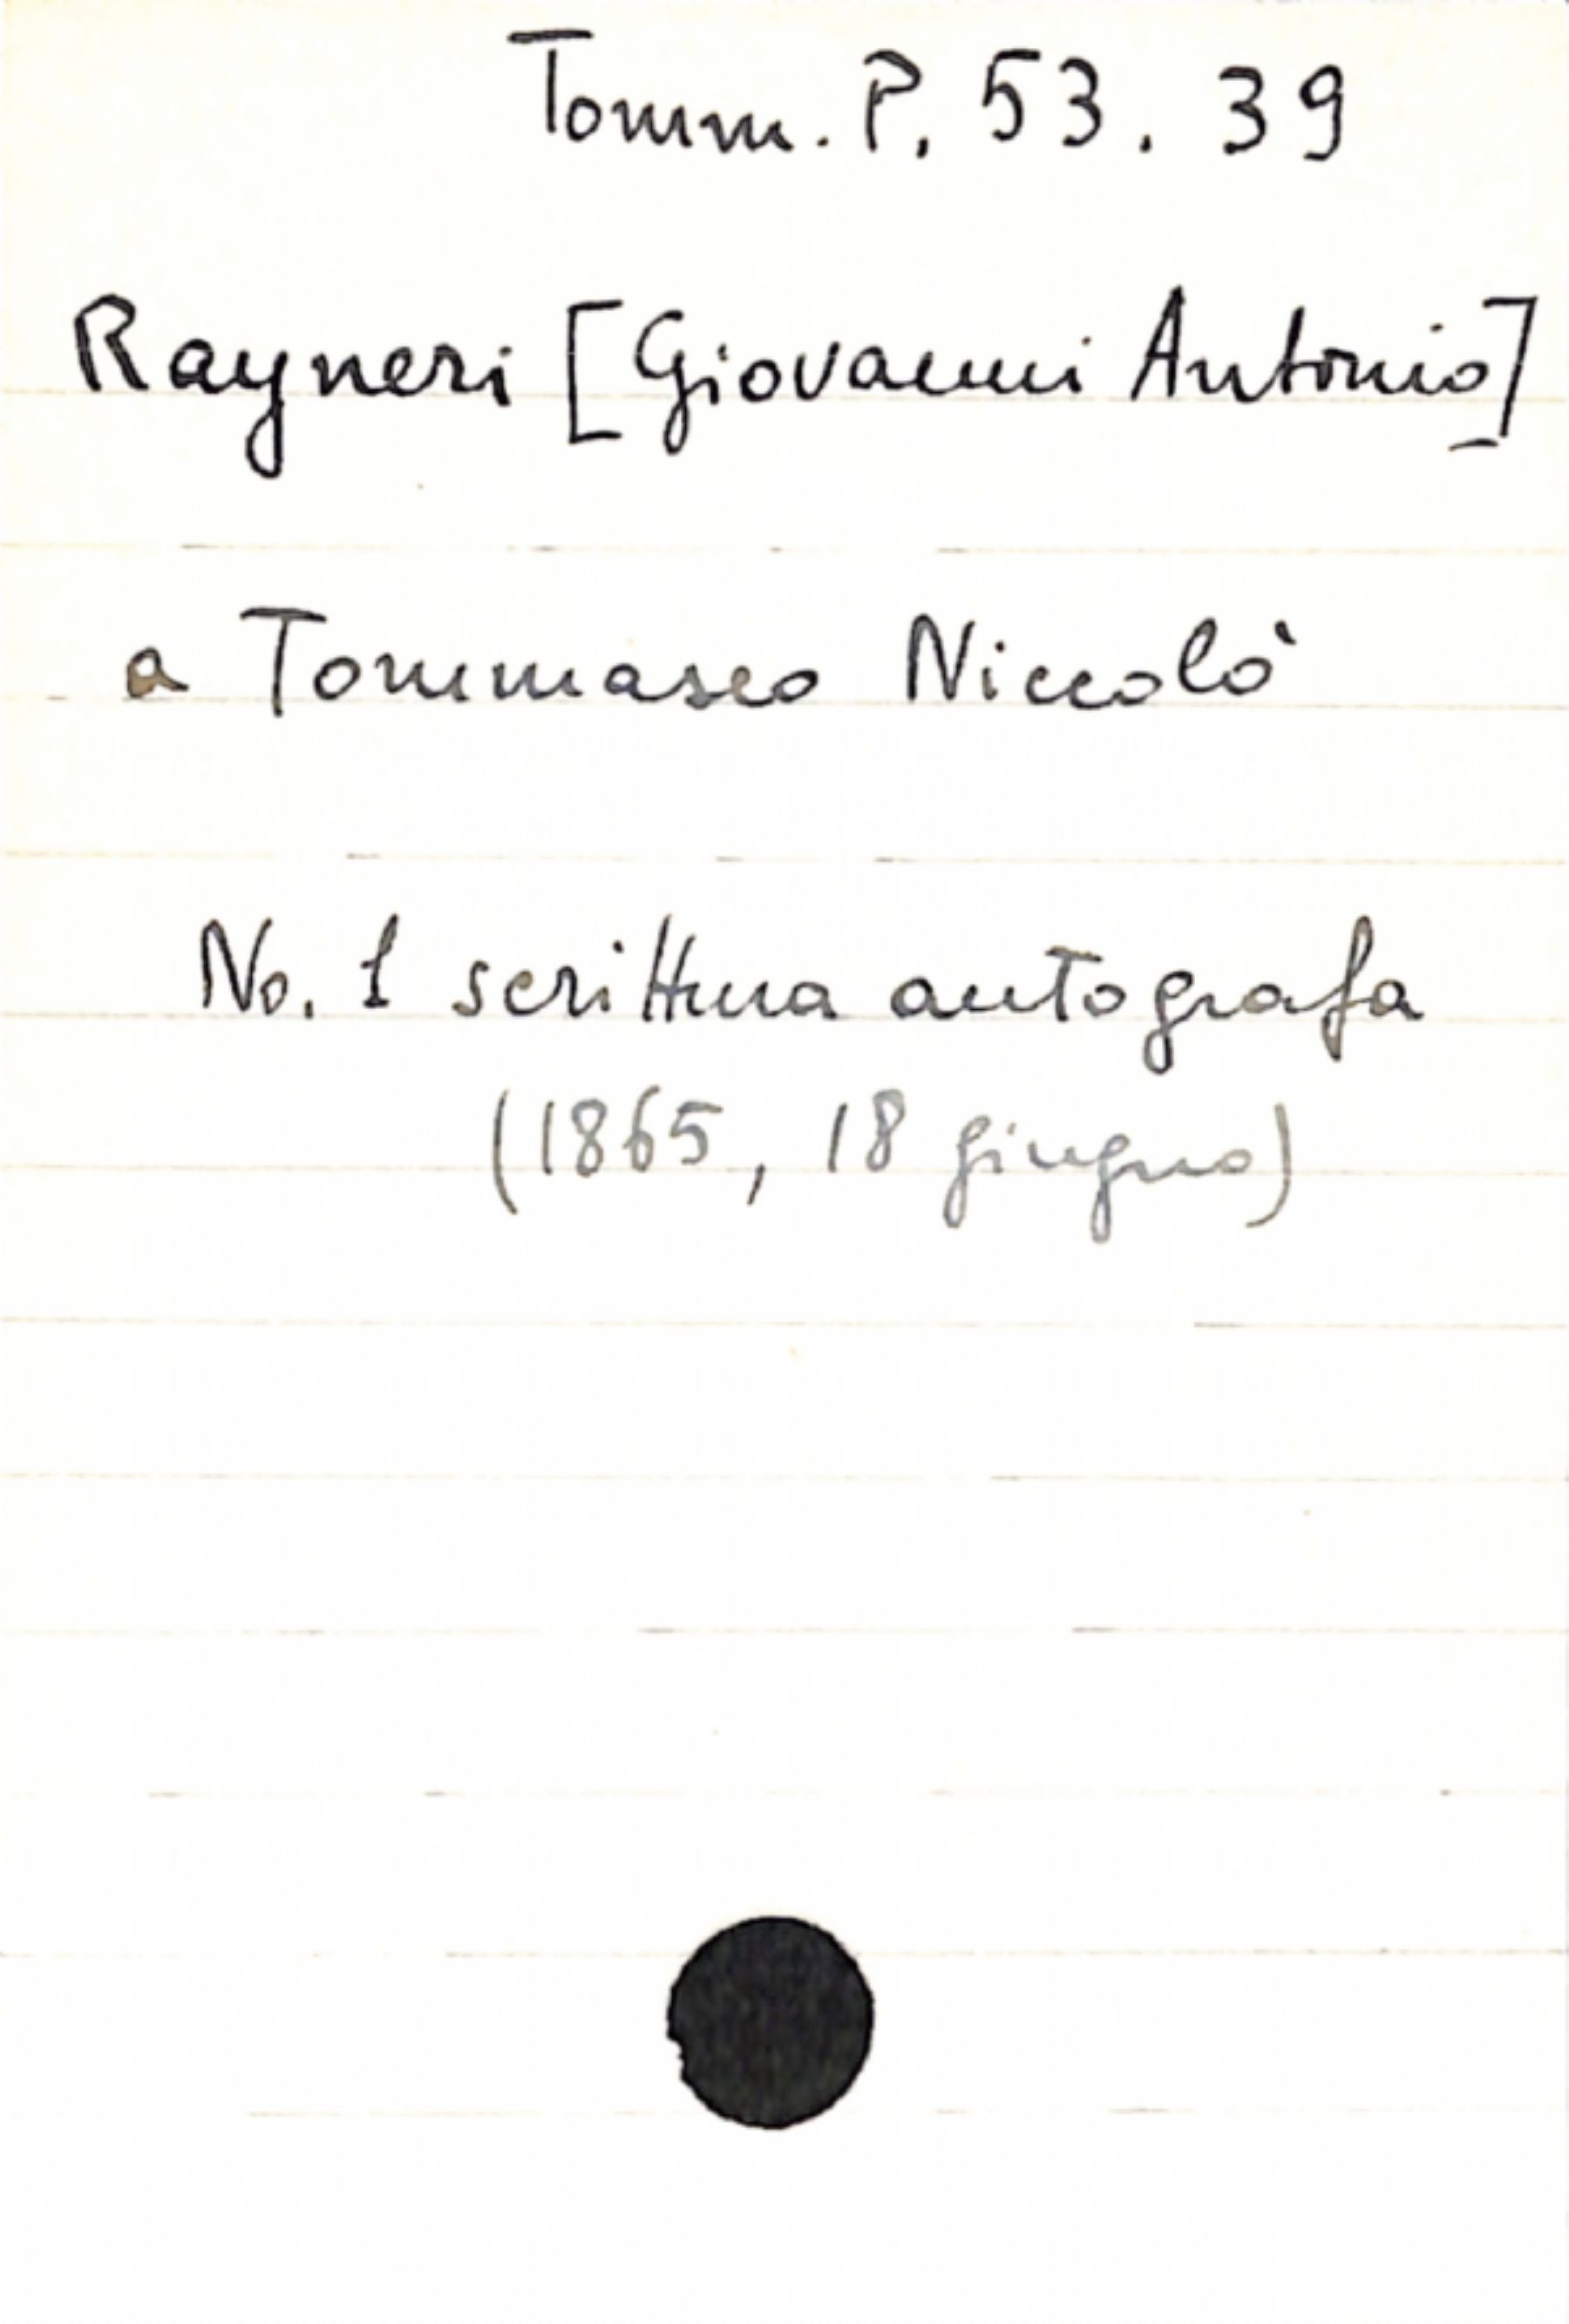 Tomm. P. 53. 39
Rayneri [Giovanni Antonio]
a Tommaseo Niccolò
No. 1 scrittura autografa
(1865, 18 giugno)